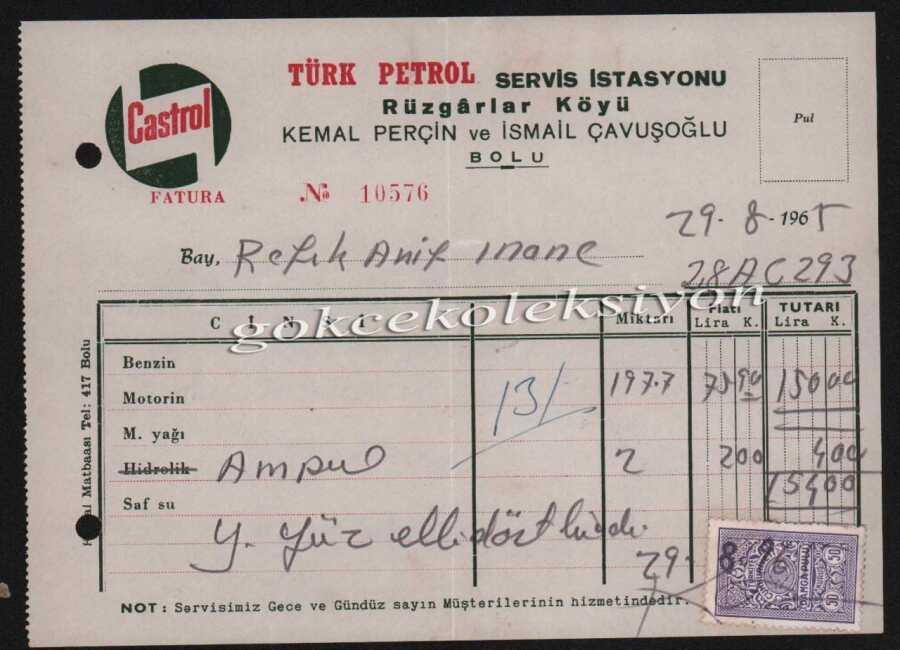 Castrol
TÜRK PETROL SERVİS İSTASYONU
Rüzgârlar Köyü
KEMAL PERÇİN ve İSMAİL ÇAVUŞOĞLU
BOLU
Pul
FATURA
№ 10576
29-8-1965
Bay, Refik Anif Inanç
28AC293
CİNSİ Miktarı Fiatı TUTARI
Lira K. Lira K.
gokcekoleksiyon
Benzin
Motorin 197.7 75 90 150 00
13/
M. yağı
Hidrolik Ampul 2 200 400
Saf su 154 00
Y. Yüz elli dört liradır.
29-8-
DAMGA PULU
30 30
NOT: Servisimiz Gece ve Gündüz sayın Müşterilerinin hizmetindedir.
Matbaası Tel: 417 Bolu